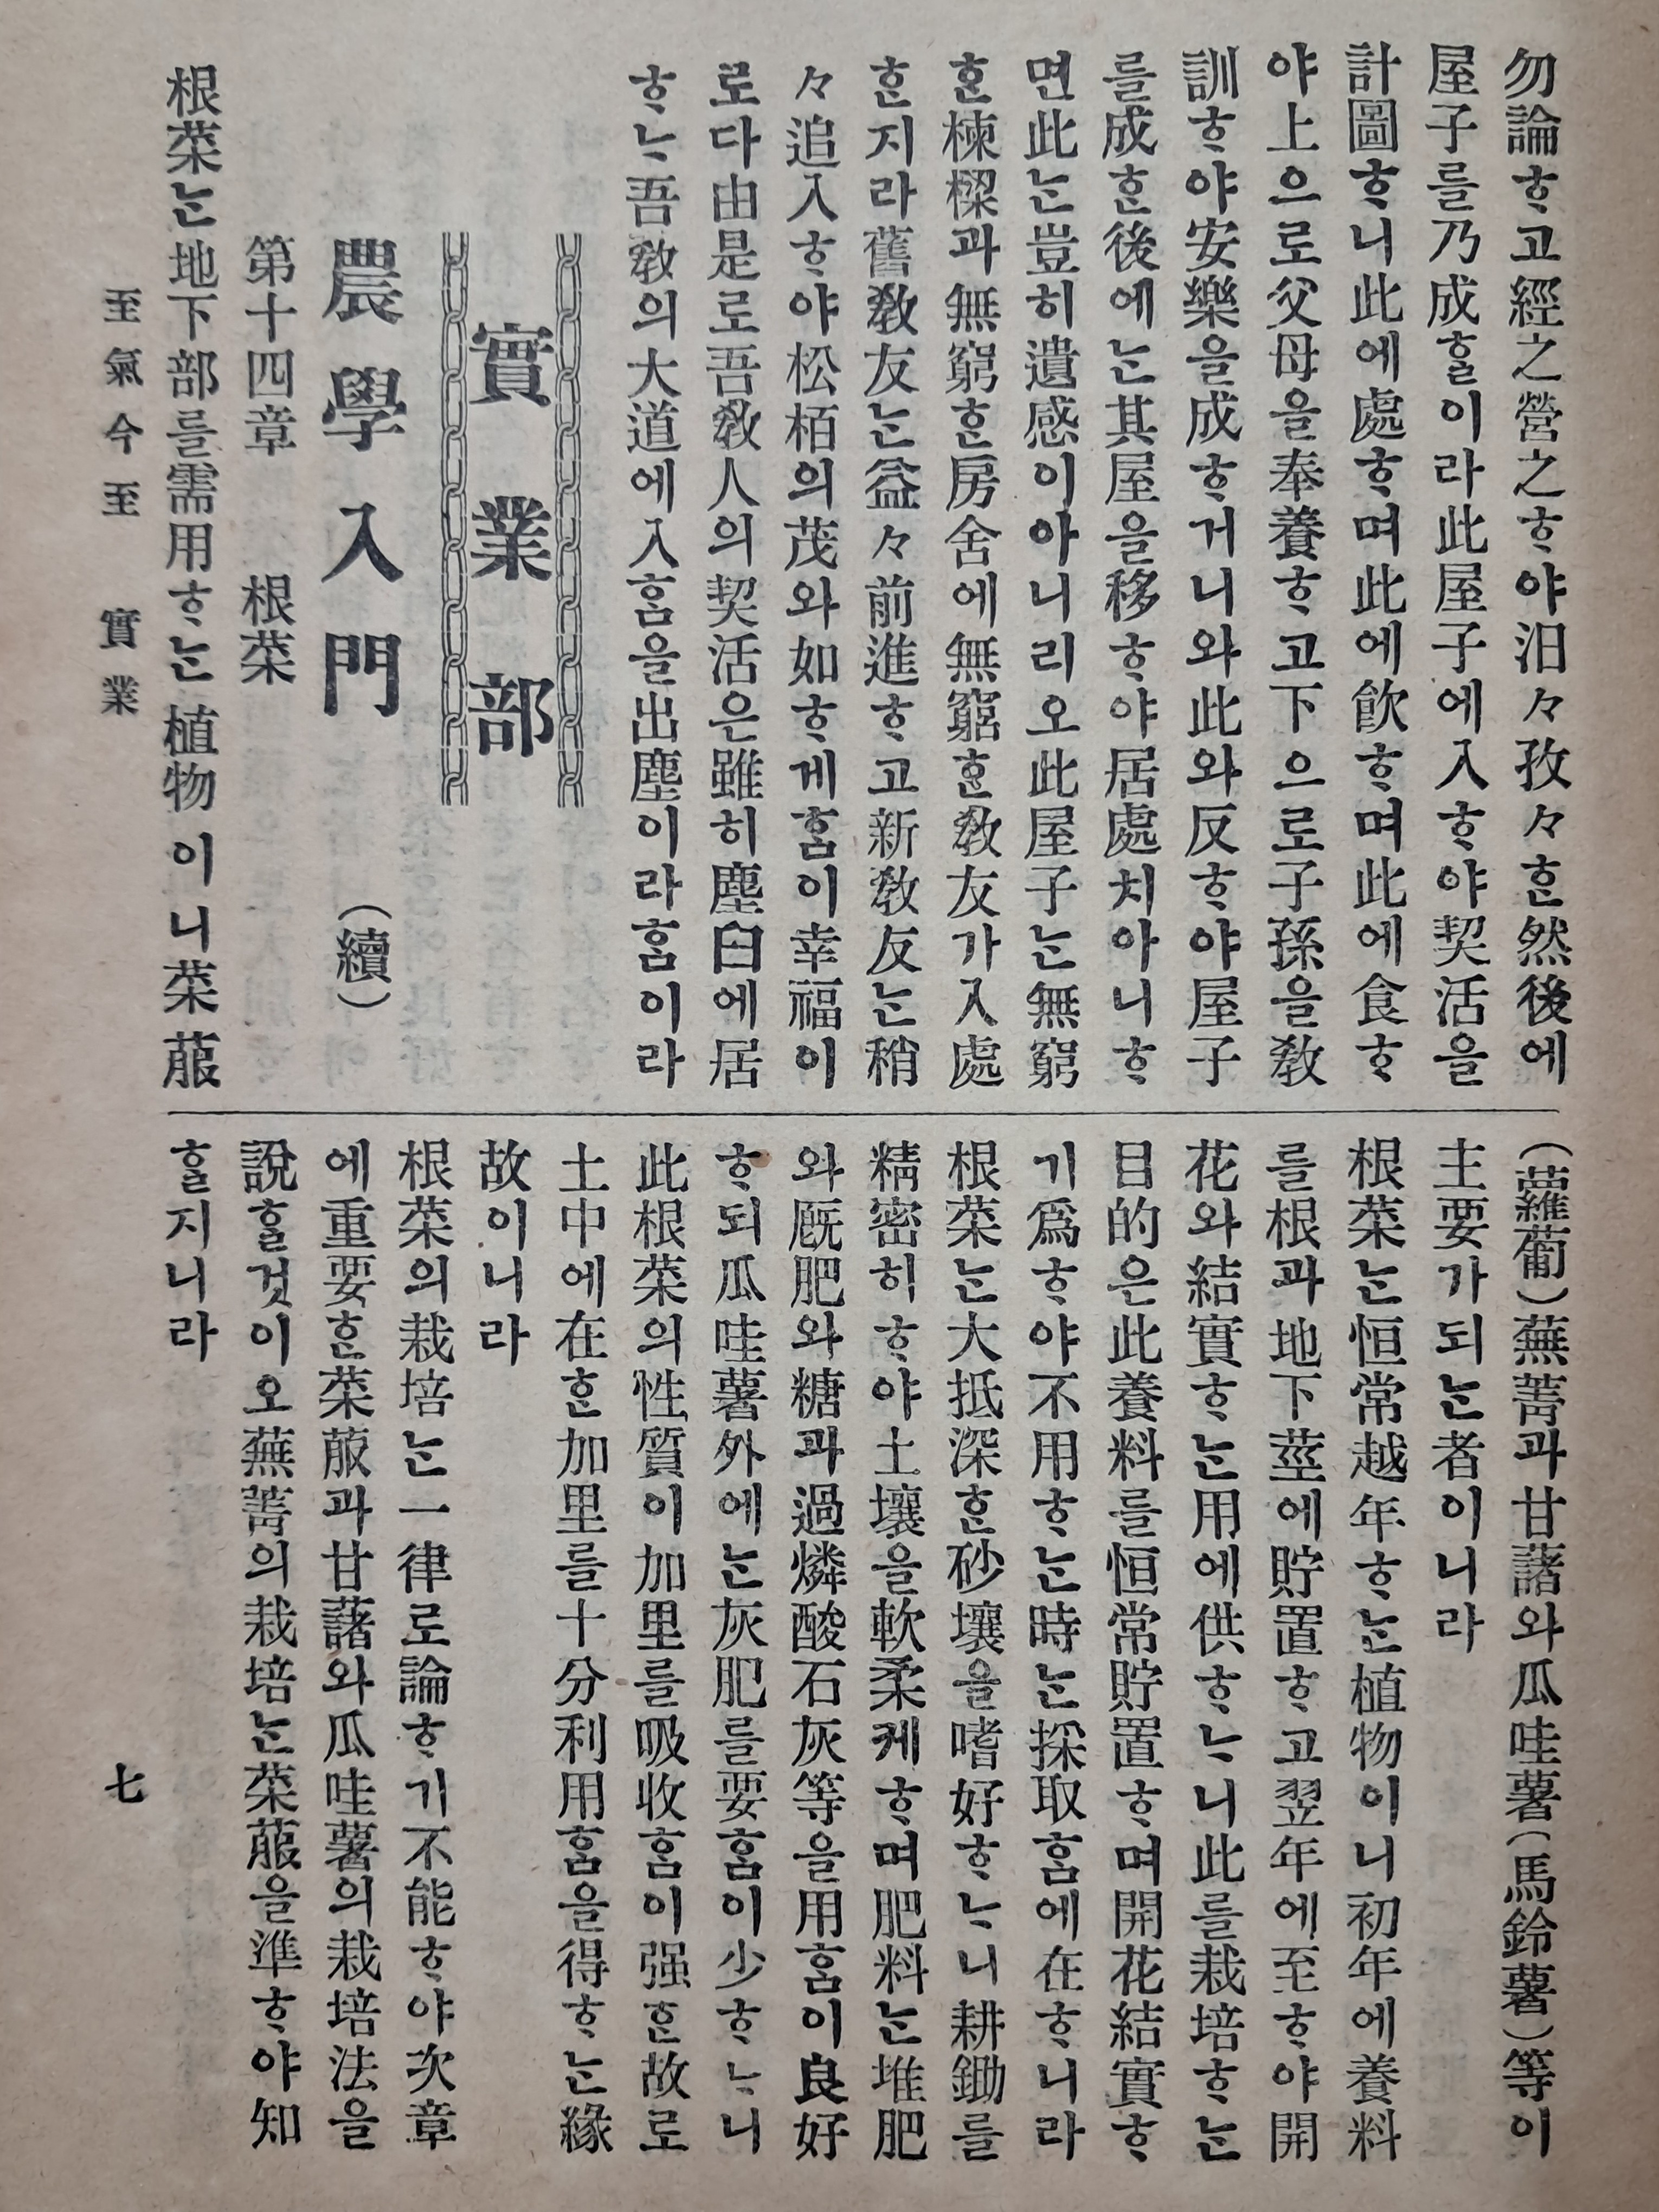 勿論ᄒᆞ고經之營之ᄒᆞ야汨々孜々ᄒᆞᆫ然後에
屋子를乃成ᄒᆞᆯ이라此屋子에入ᄒᆞ야契活을
計圖ᄒᆞ니此에處ᄒᆞ며此에飮ᄒᆞ며此에食ᄒᆞ
야上으로父母을奉養ᄒᆞ고下으로子孫을敎
訓ᄒᆞ야安樂을成ᄒᆞ거니와此와反ᄒᆞ야屋子
를成ᄒᆞᆫ後에ᄂᆞᆫ其屋을移ᄒᆞ야居處치아니ᄒᆞ
면此ᄂᆞᆫ豈히遺感이아니리오此屋子ᄂᆞᆫ無窮
ᄒᆞᆫ棟樑과無窮ᄒᆞᆫ房舍에無窮ᄒᆞᆫ敎友가入處
ᄒᆞᆫ지라舊敎友ᄂᆞᆫ益々前進ᄒᆞ고新敎友ᄂᆞᆫ稍
々追入ᄒᆞ야松栢의茂와如ᄒᆞ게ᄒᆞᆷ이幸福이
로다由是로吾敎人의契活은雖히塵臼에居
ᄒᆞᄂᆞ吾敎의大道에入ᄒᆞᆷ을出塵이라ᄒᆞᆷ이라
實業部
農學入門 (續)
第十四章 根菜
根菜ᄂᆞᆫ地下部를需用ᄒᆞᄂᆞᆫ植物이니菜菔
(蘿蔔)蕪菁과甘藷와瓜哇薯(馬鈴薯)等이
主要가되ᄂᆞᆫ者이니라
根菜ᄂᆞᆫ恒常越年ᄒᆞᄂᆞᆫ植物이니初年에養料
를根과地下莖에貯置ᄒᆞ고翌年에至ᄒᆞ야開
花와結實ᄒᆞᄂᆞᆫ用에供ᄒᆞᄂᆞ니此를栽培ᄒᆞᄂᆞᆫ
目的은此養料를恒常貯置ᄒᆞ며開花結實ᄒᆞ
기爲ᄒᆞ야不用ᄒᆞᄂᆞᆫ時ᄂᆞᆫ採取ᄒᆞᆷ에在ᄒᆞ니라
根菜ᄂᆞᆫ大抵深ᄒᆞᆫ砂壤을嗜好ᄒᆞᄂᆞ니耕鋤를
精密히ᄒᆞ야土壤을軟柔케ᄒᆞ며肥料ᄂᆞᆫ堆肥
와廐肥와糖과過燐酸石灰等을用ᄒᆞᆷ이良好
ᄒᆞ되瓜哇薯外에ᄂᆞᆫ灰肥를要ᄒᆞᆷ이少ᄒᆞᄂᆞ니
此根菜의性質이加里를吸收ᄒᆞᆷ이强ᄒᆞᆫ故로
土中에在ᄒᆞᆫ加里를十分利用ᄒᆞᆷ을得ᄒᆞᄂᆞᆫ緣
故이니라
根菜의栽培ᄂᆞᆫ一律로論ᄒᆞ기不能ᄒᆞ야次章
에重要ᄒᆞᆫ菜菔과甘藷와瓜哇薯의栽培法을
說ᄒᆞᆯ것이오蕪菁의栽培ᄂᆞᆫ菜菔을準ᄒᆞ야知
ᄒᆞᆯ지니라
至氣今至 實業
七